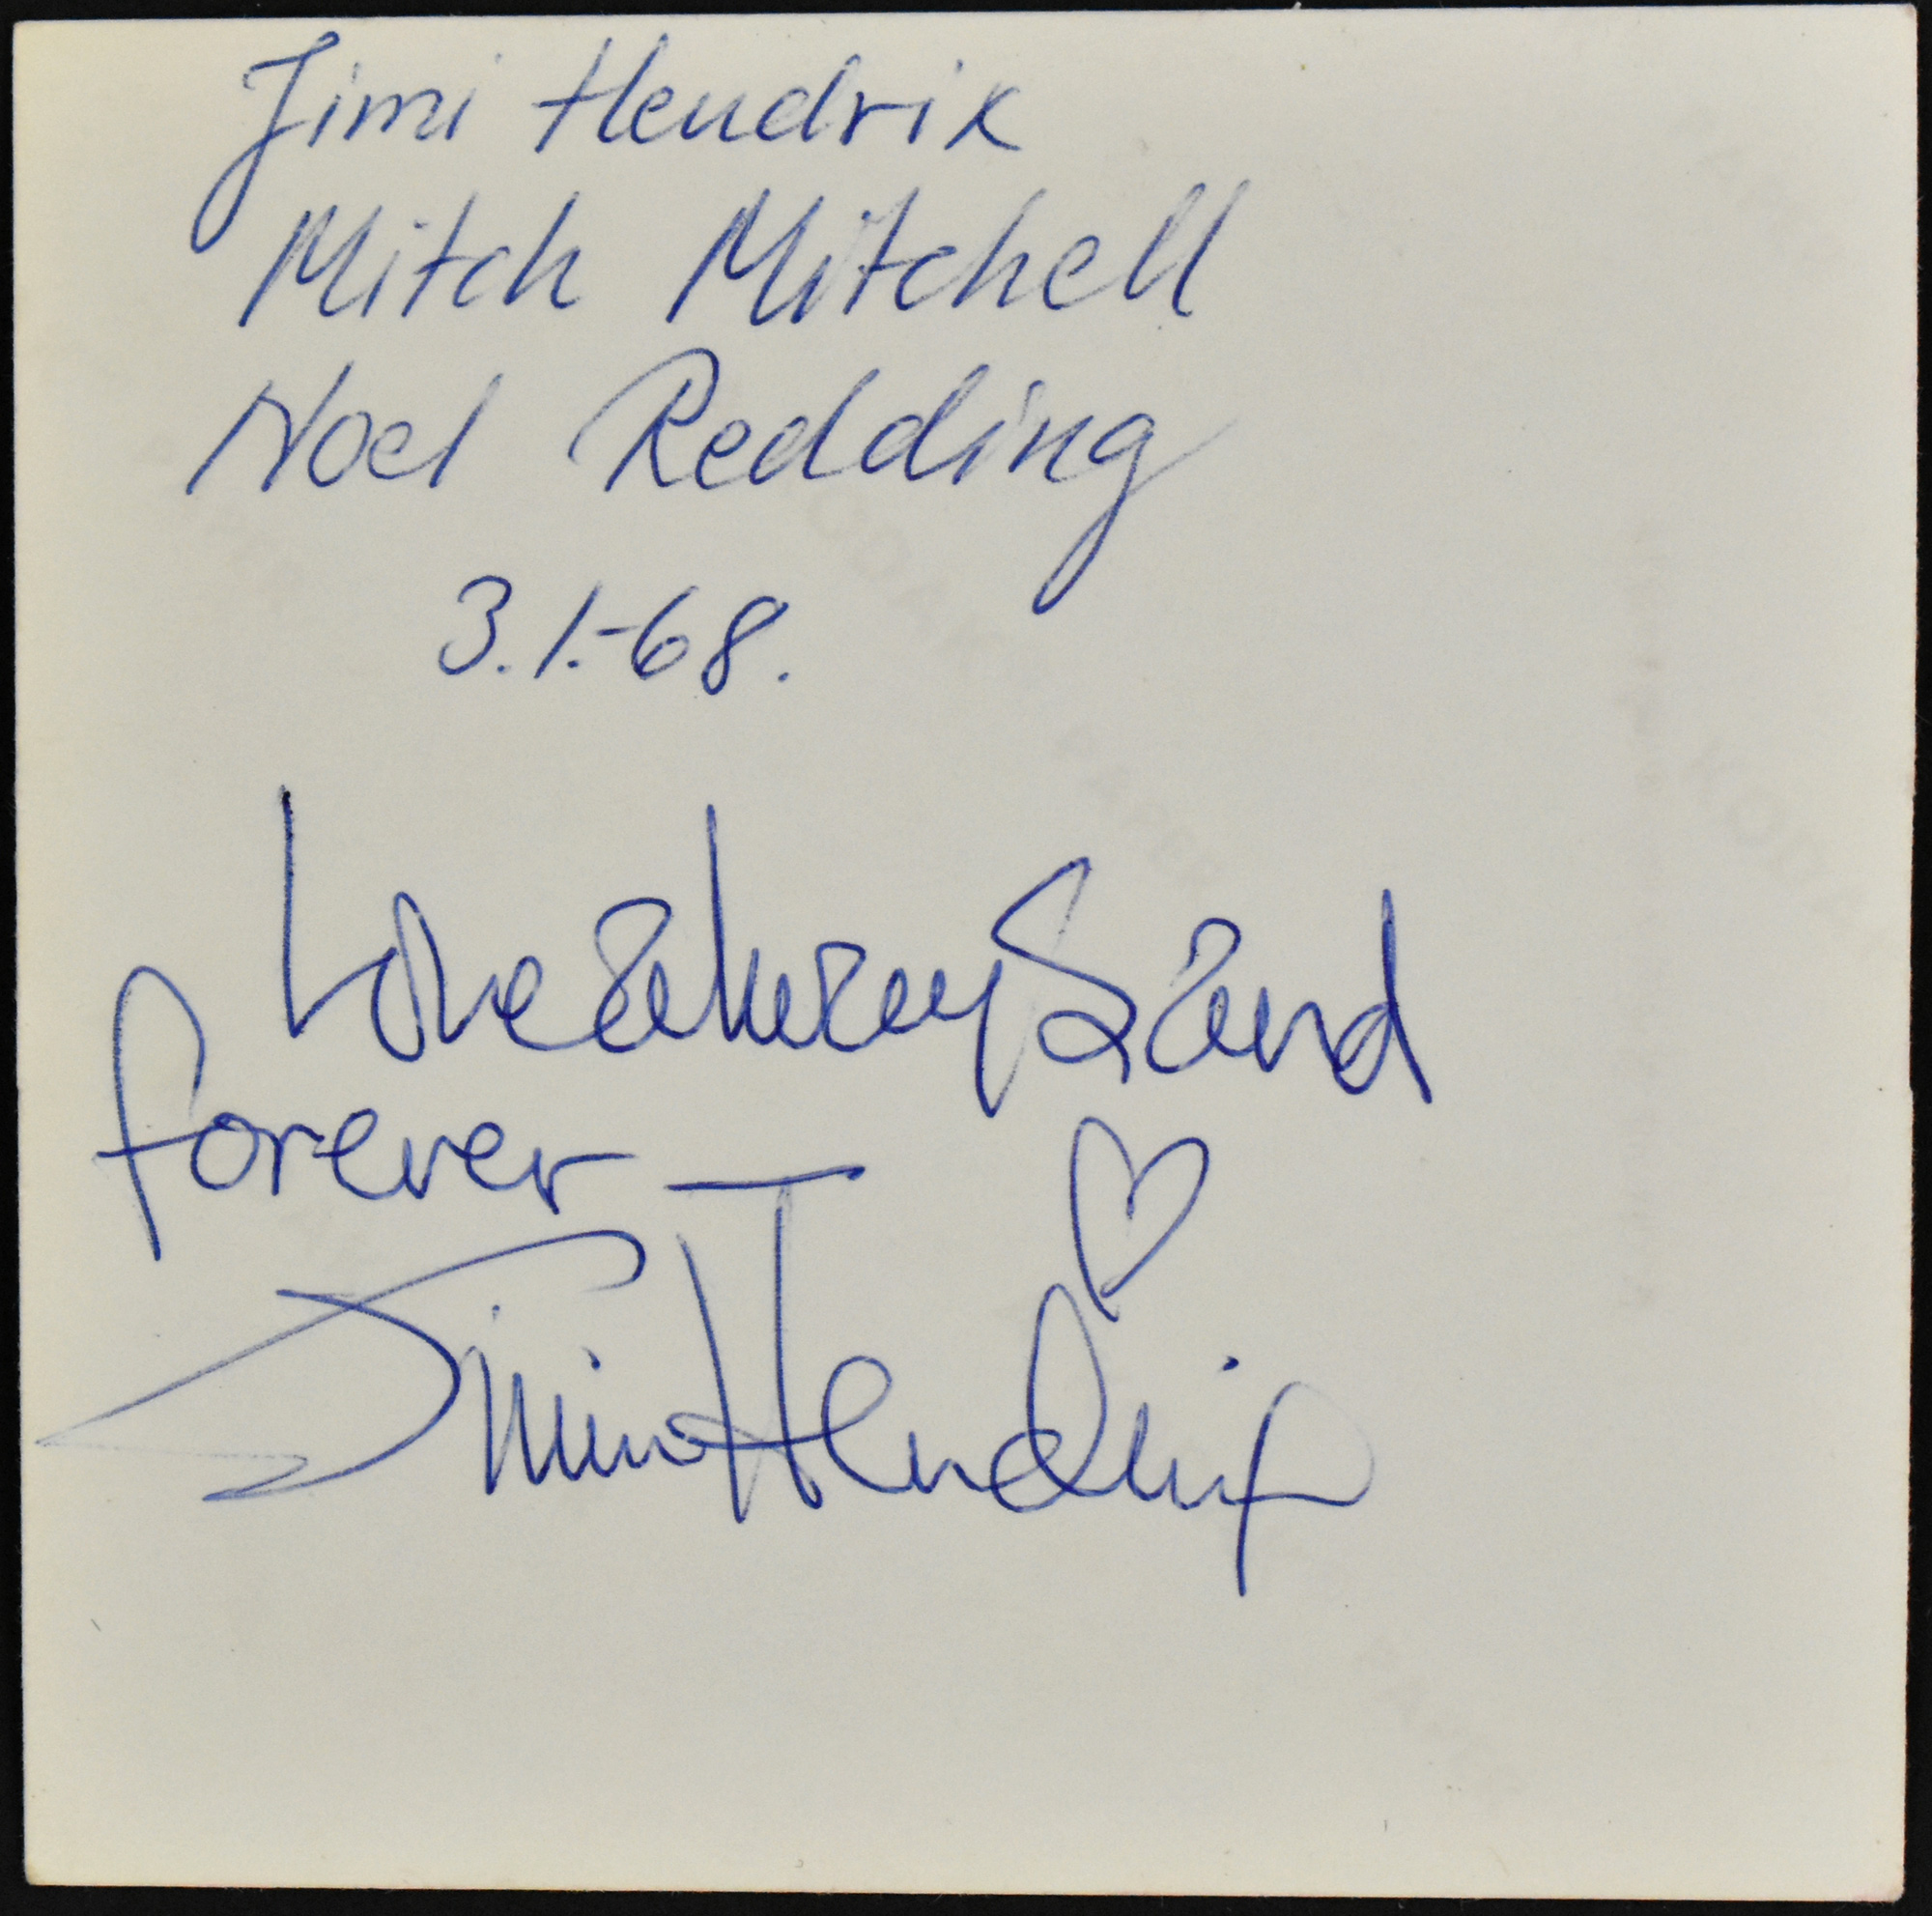 Jimi Hendrix
Mitch Mitchell
Noel Redding
3.1.-68.
Love always and
forever
Jimi Hendrix